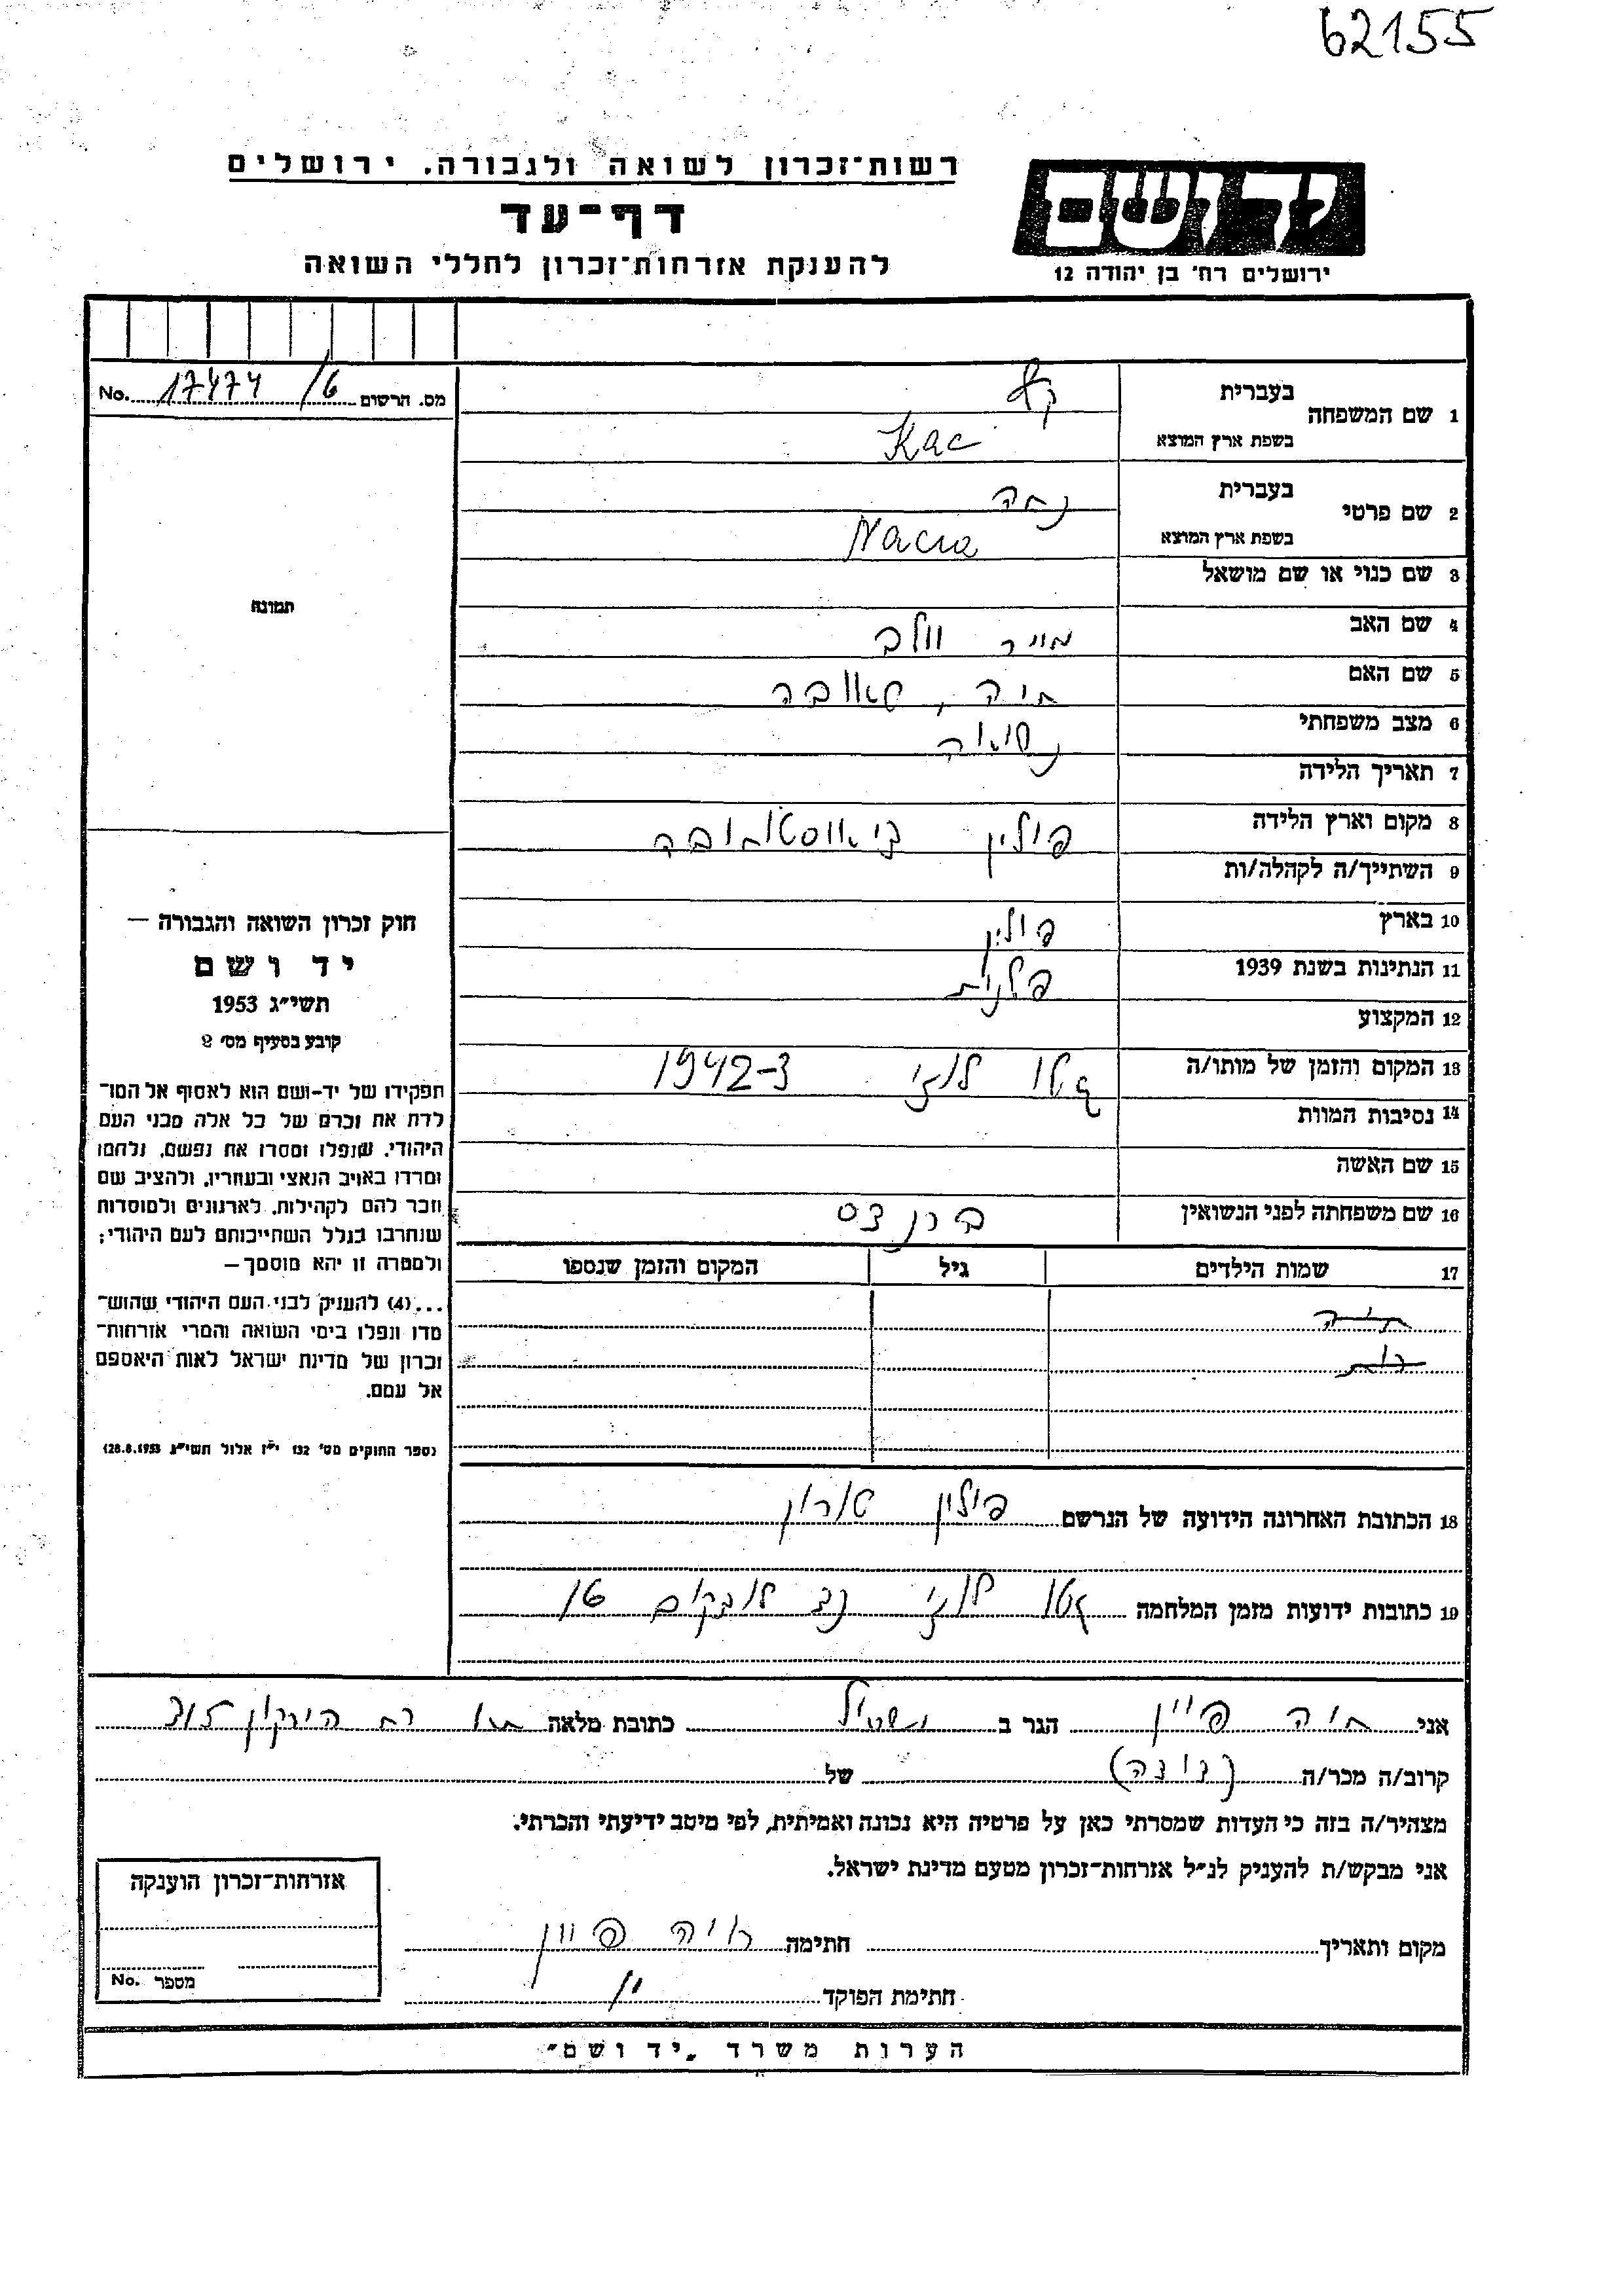 62155
רשות־זכרון לשואה ולגבורה. ירושלים
דף־עד
להענקת אזרחות־זכרון לחללי השואה
יד ושם
ירושלים רח׳ בן יהודה 12
No. 17474/6 מס. הרשום
1 שם המשפחה
בעברית קץ
בשפת ארץ המוצא Kac
2 שם פרטי
בעברית נחה
בשפת ארץ המוצא
3 שם כנוי או שם מושאל
4 שם האב מייר וולב
5 שם האם חיה,
6 מצב משפחתי נשואה
7 תאריך הלידה
8 מקום וארץ הלידה פולין
9 השתייך/ה לקהלה/ות
10 בארץ פולין
11 הנתינות בשנת 1939 פלנית
12 המקצוע
13 המקום והזמן של מותו/ה גטו לודז׳ 1942-3
14 נסיבות המוות
15 שם האשה
16 שם משפחתה לפני הנשואין
17 שמות הילדים גיל המקום והזמן שנספו
חיה
רות
18 הכתובת האחרונה הידועה של הנרשם פולין
19 כתובות ידועות מזמן המלחמה גטו לודז׳ 16
תמונה
חוק זכרון השואה והגבורה —
יד ושם
תשי״ג 1953
קובע בסעיף מס׳ 2
תפקידו של יד-ושם הוא לאסוף אל המו־
לדת את זכרם של כל אלה מבני העם
היהודי, שנפלו ומסרו את נפשם, נלחמו
ומרדו באויב הנאצי ובעוזריו, ולהציב שם
וזכר להם לקהילות, לארגונים ולמוסדות
שנחרבו בגלל השתייכותם לעם היהודי;
ולמטרה זו יהא מוסמך —
...(4) להעניק לבני העם היהודי שהוש־
מדו ונפלו בימי השואה והמרי אזרחות־
זכרון של מדינת ישראל לאות היאספם
אל עמם.
(ספר החוקים מס׳ 132 י״ז אלול תשי״ג 28.8.1953)
אני חיה פיין הגר ב כתובת מלאה רח הירקון 315
קרוב/ה מכר/ה (בונה) של
מצהיר/ה בזה כי העדות שמסרתי כאן על פרטיה היא נכונה ואמיתית, לפי מיטב ידיעתי והכרתי.
אני מבקש/ת להעניק לנ״ל אזרחות־זכרון מטעם מדינת ישראל.
מקום ותאריך חתימה חיה פיין
חתימת הפוקד
אזרחות־זכרון הוענקה
מספר No.
הערות משרד „יד ושם״